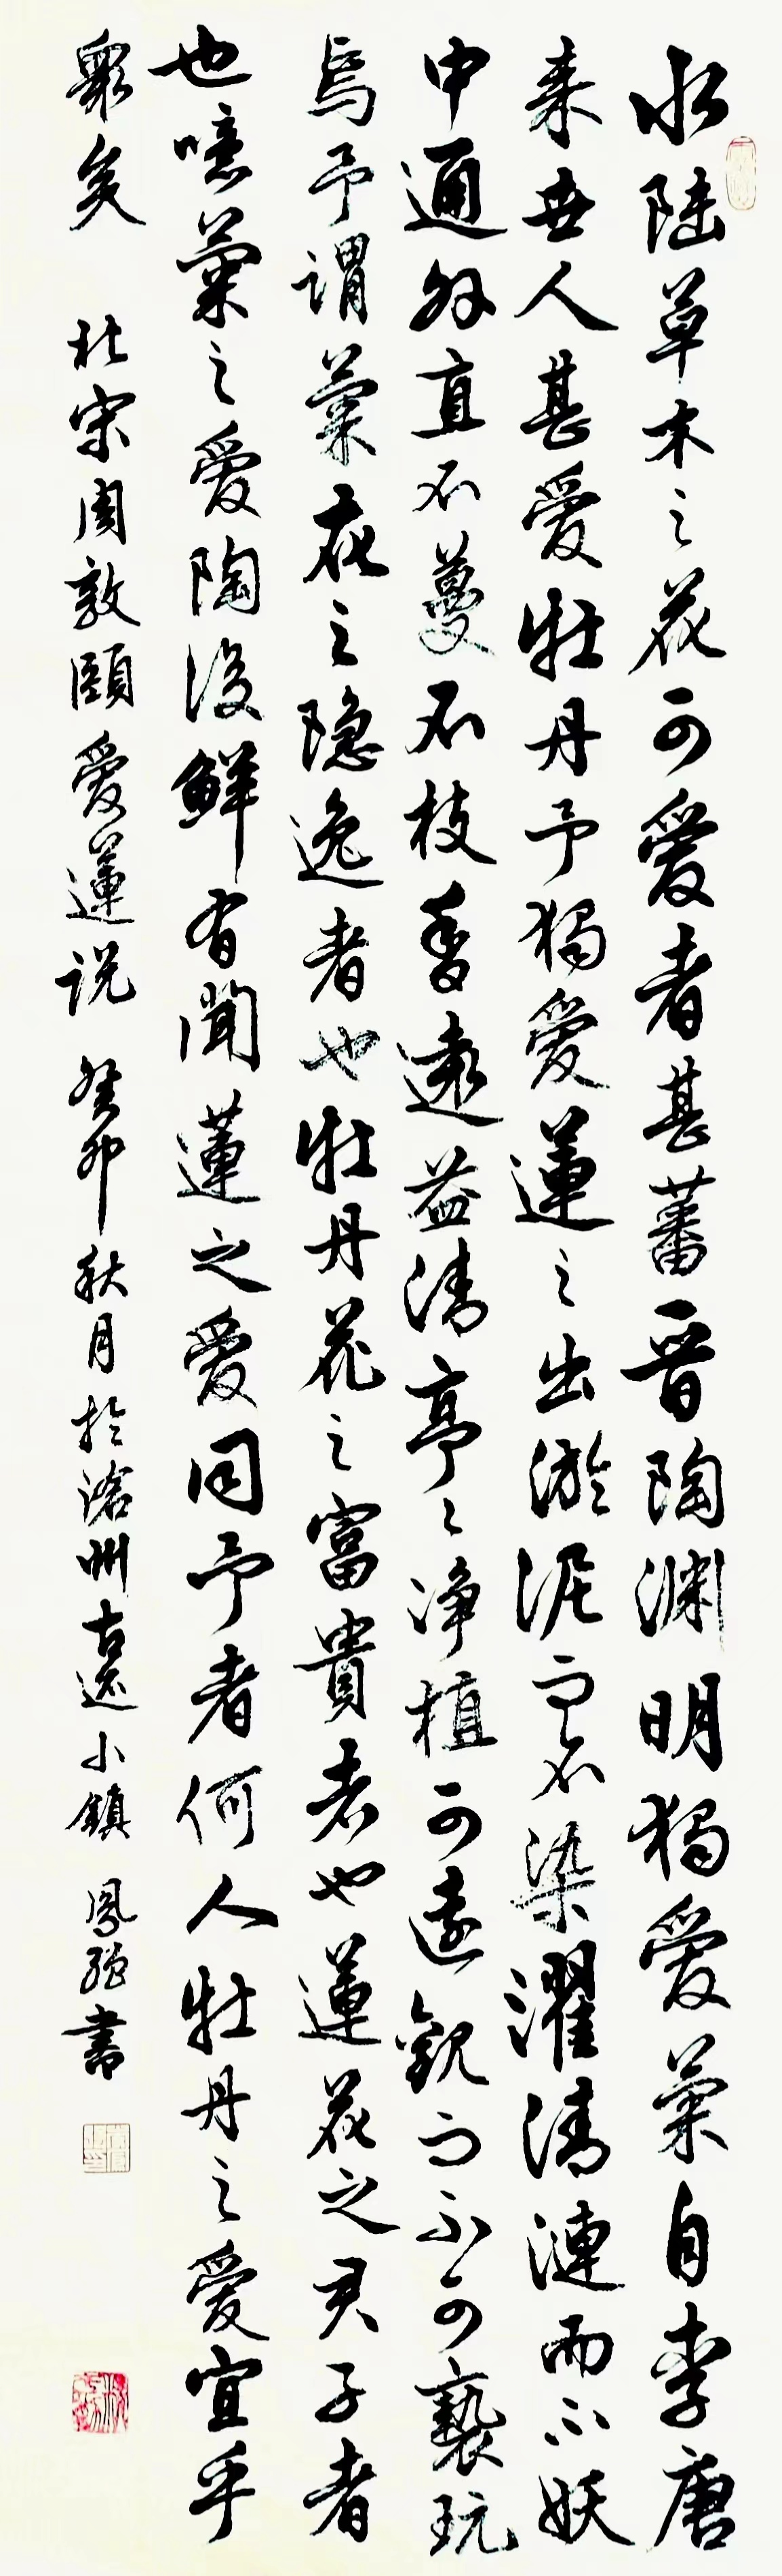 水陆草木之花可爱者甚蕃晋陶渊明独爱菊自李唐
来世人甚爱牡丹予独爱蓮之出淤泥而不染濯清漣而不妖
中通外直不蔓不枝香遠益清亭々净植可遠觀而不可褻玩
焉予谓菊花之隐逸者也牡丹花之富貴者也蓮花之君子者
也噫菊之愛陶後鲜有聞蓮之愛同予者何人牡丹之愛宜乎
衆矣 宋周敦颐愛蓮说 癸卯秋月於滄州古运小鎮 鳳强書